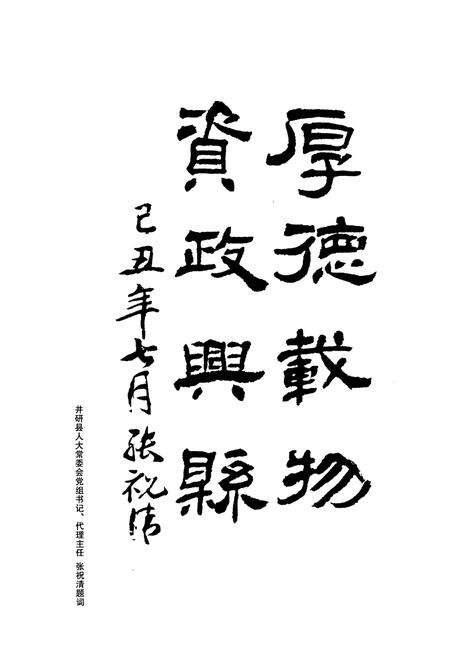 厚德載物
資政興縣
己丑年七月 张祝清
井研县人大常委会党组书记、代理主任 张祝清题词